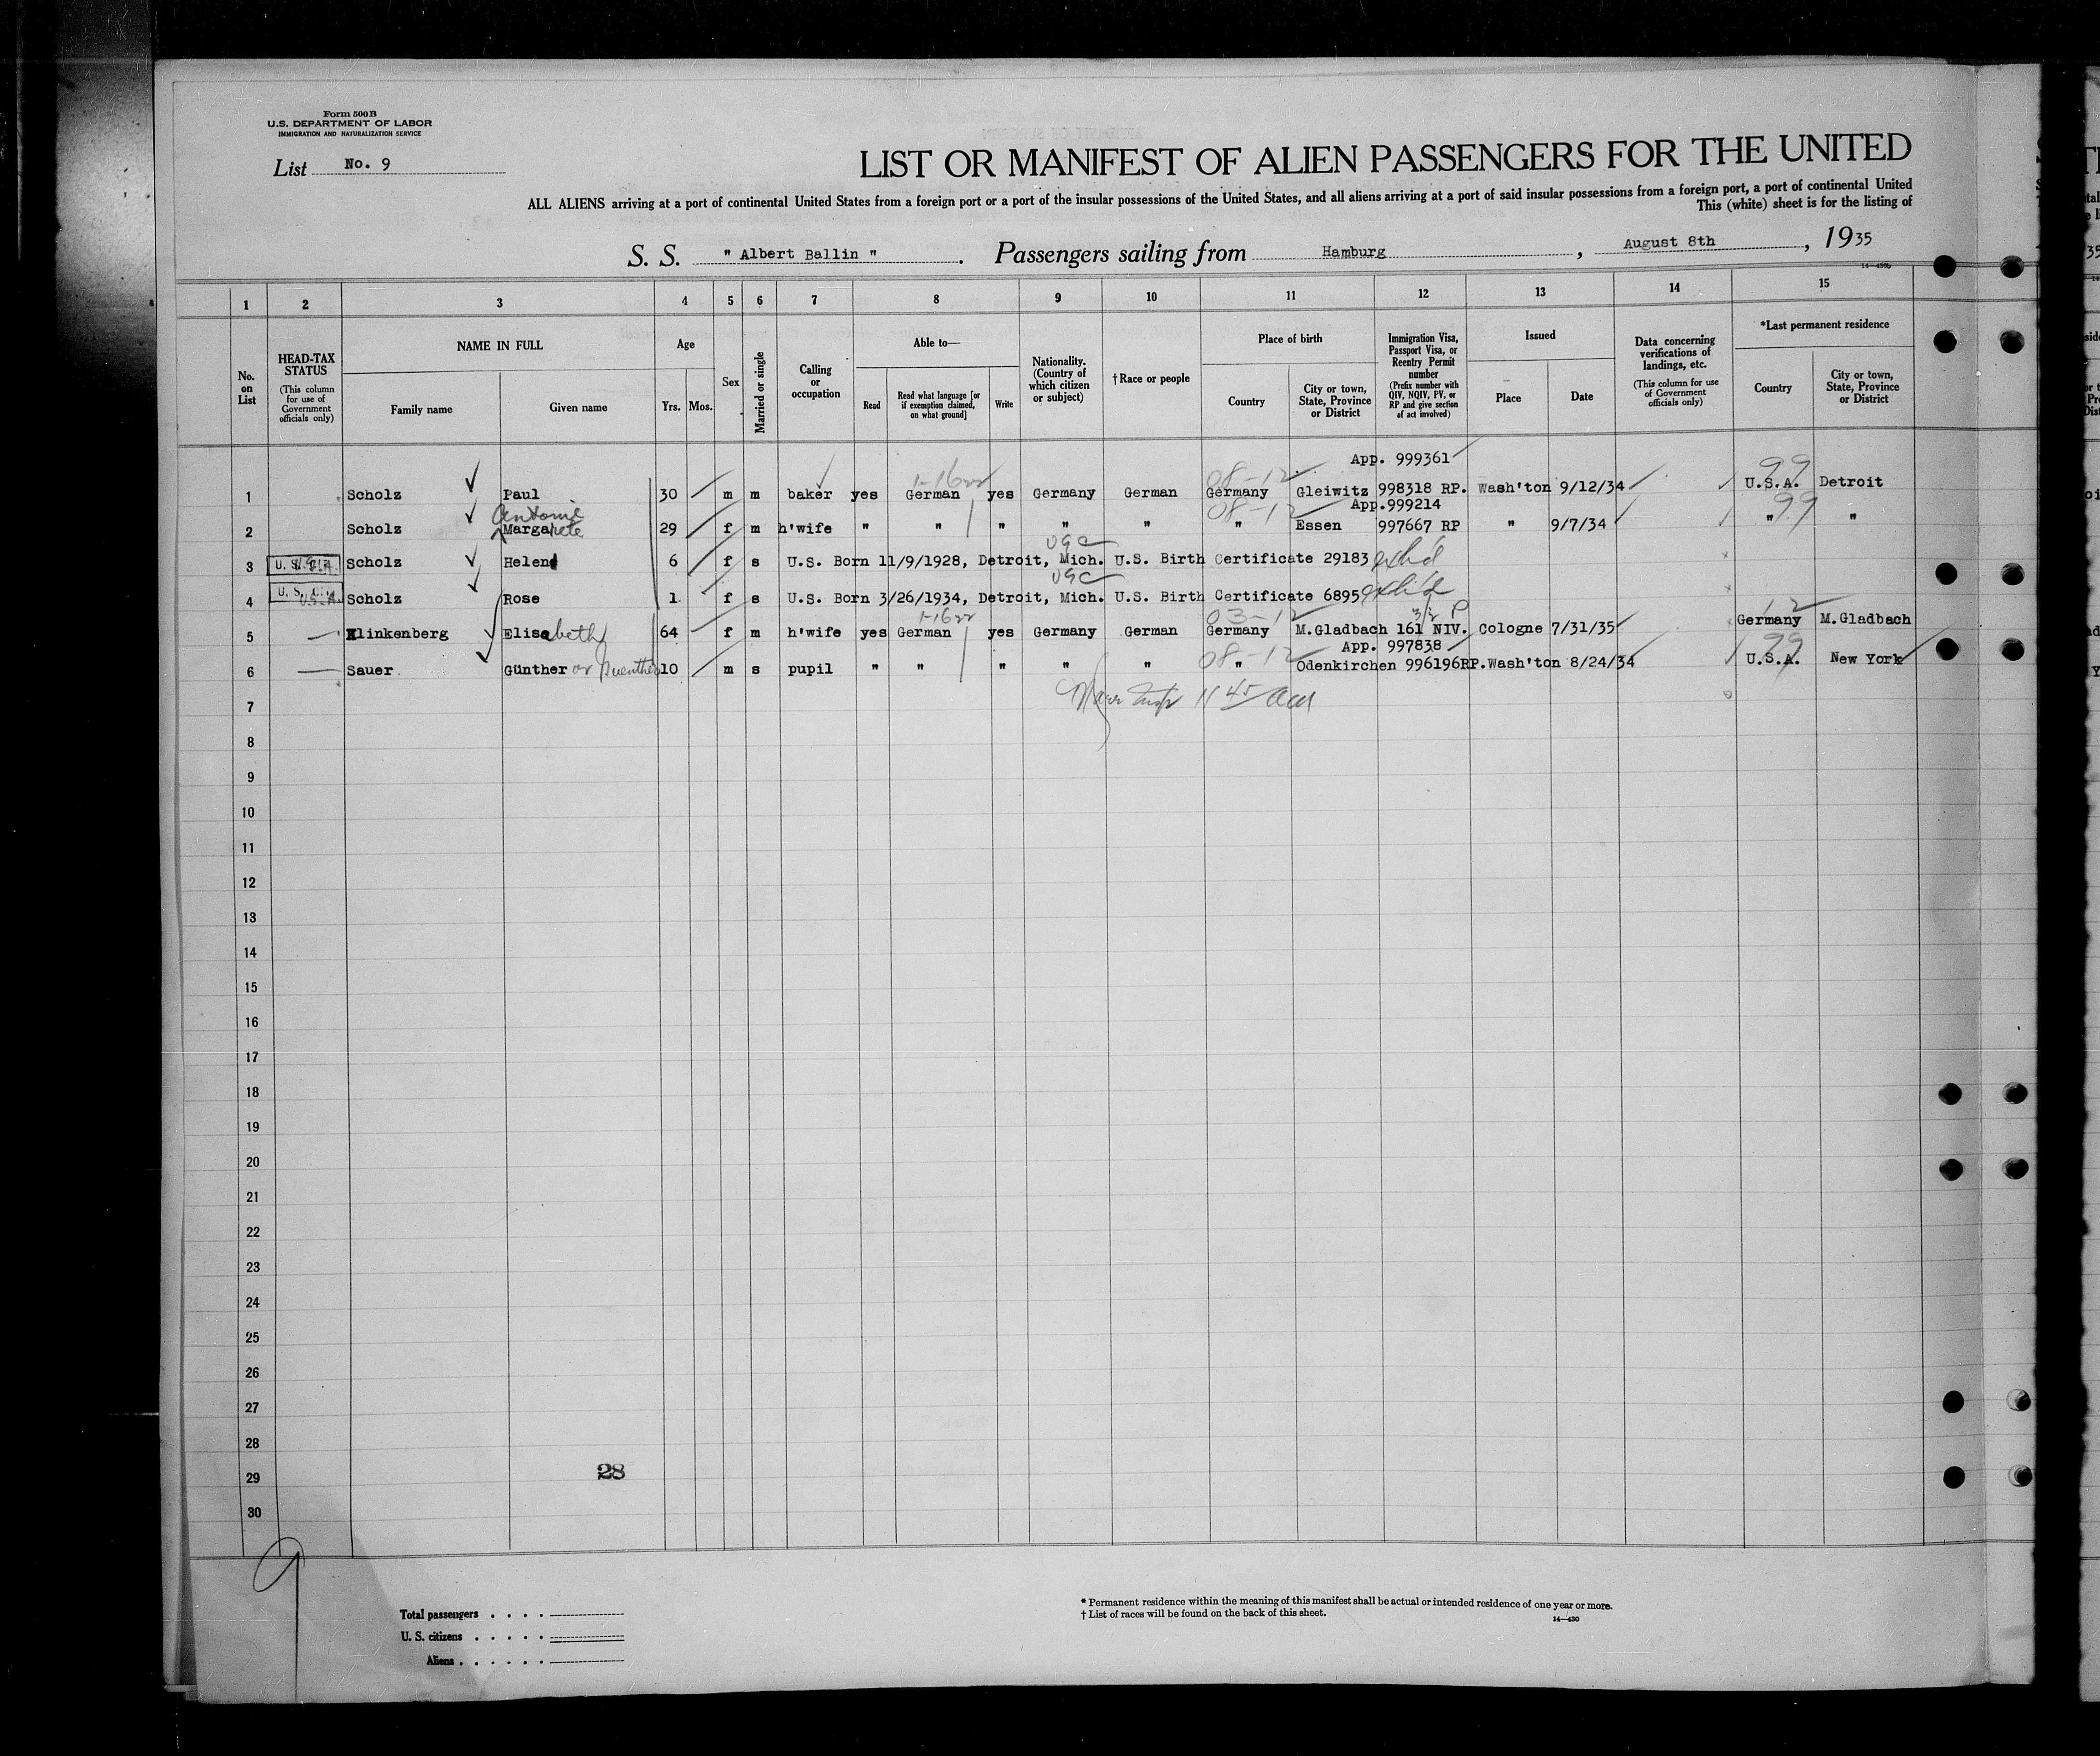 Form 500B
U.S. DEPARTMENT OF LABOR
IMMIGRATION AND NATURALIZATION SERVICE
List No. 9
LIST OR MANIFEST OF ALIEN PASSENGERS FOR THE UNITED
ALL ALIENS arriving at a port of continental United States from a foreign port or a port of the insular possessions of the United States, and all aliens arriving at a port of said insular possessions from a foreign port, a port of continental United
This (white) sheet is for the listing of
S. S. " Albert Ballin ". Passengers sailing from Hamburg, August 8th, 1935
1 2 3 4 5 6 7 8 9 10 11 12 13 14 15
No. on List
HEAD-TAX STATUS (This column for use of Government officials only)
NAME IN FULL
Family name Given name
Age
Yrs. Mos.
Sex
Married or single
Calling or occupation
Able to—
Read Read what language [or if exemption claimed, on what ground] Write
Nationality. (Country of which citizen or subject)
†Race or people
Place of birth
Country City or town, State, Province or District
Immigration Visa, Passport Visa, or Reentry Permit number (Prefix number with QIV, NQIV, PV, or RP and give section of act involved)
Issued
Place Date
Data concerning verifications of landings, etc. (This column for use of Government officials only)
*Last permanent residence
Country City or town, State, Province or District
App. 999361
08-12 99
1 Scholz Paul 30 m m baker yes German yes Germany German Germany Gleiwitz 998318 RP. Wash'ton 9/12/34 U.S.A. Detroit
Antonie 08-12 App.999214 99
2 Scholz Margarete 29 f m h'wife " " " " " " Essen 997667 RP " 9/7/34 " "
3 U. S. CIT. Scholz Helen 6 f s U.S. Born 11/9/1928, Detroit, Mich. U.S. Birth Certificate 29183 exh'd
4 U. S. CIT. Scholz Rose 1 f s U.S. Born 3/26/1934, Detroit, Mich. U.S. Birth Certificate 6895 exh'd
03-12 12
5 Klinkenberg Elisabeth 64 f m h'wife yes German yes Germany German Germany M.Gladbach 161 NIV. Cologne 7/31/35 Germany M.Gladbach
App. 997838
08-12 99
6 Sauer Günther or Guenther 10 m s pupil " " " " " " Odenkirchen 996196RP. Wash'ton 8/24/34 U.S.A. New York
7
8
9
10
11
12
13
14
15
16
17
18
19
20
21
22
23
24
25
26
27
28
29 28
30
9
Total passengers
U. S. citizens
Aliens
* Permanent residence within the meaning of this manifest shall be actual or intended residence of one year or more.
† List of races will be found on the back of this sheet.
14—430